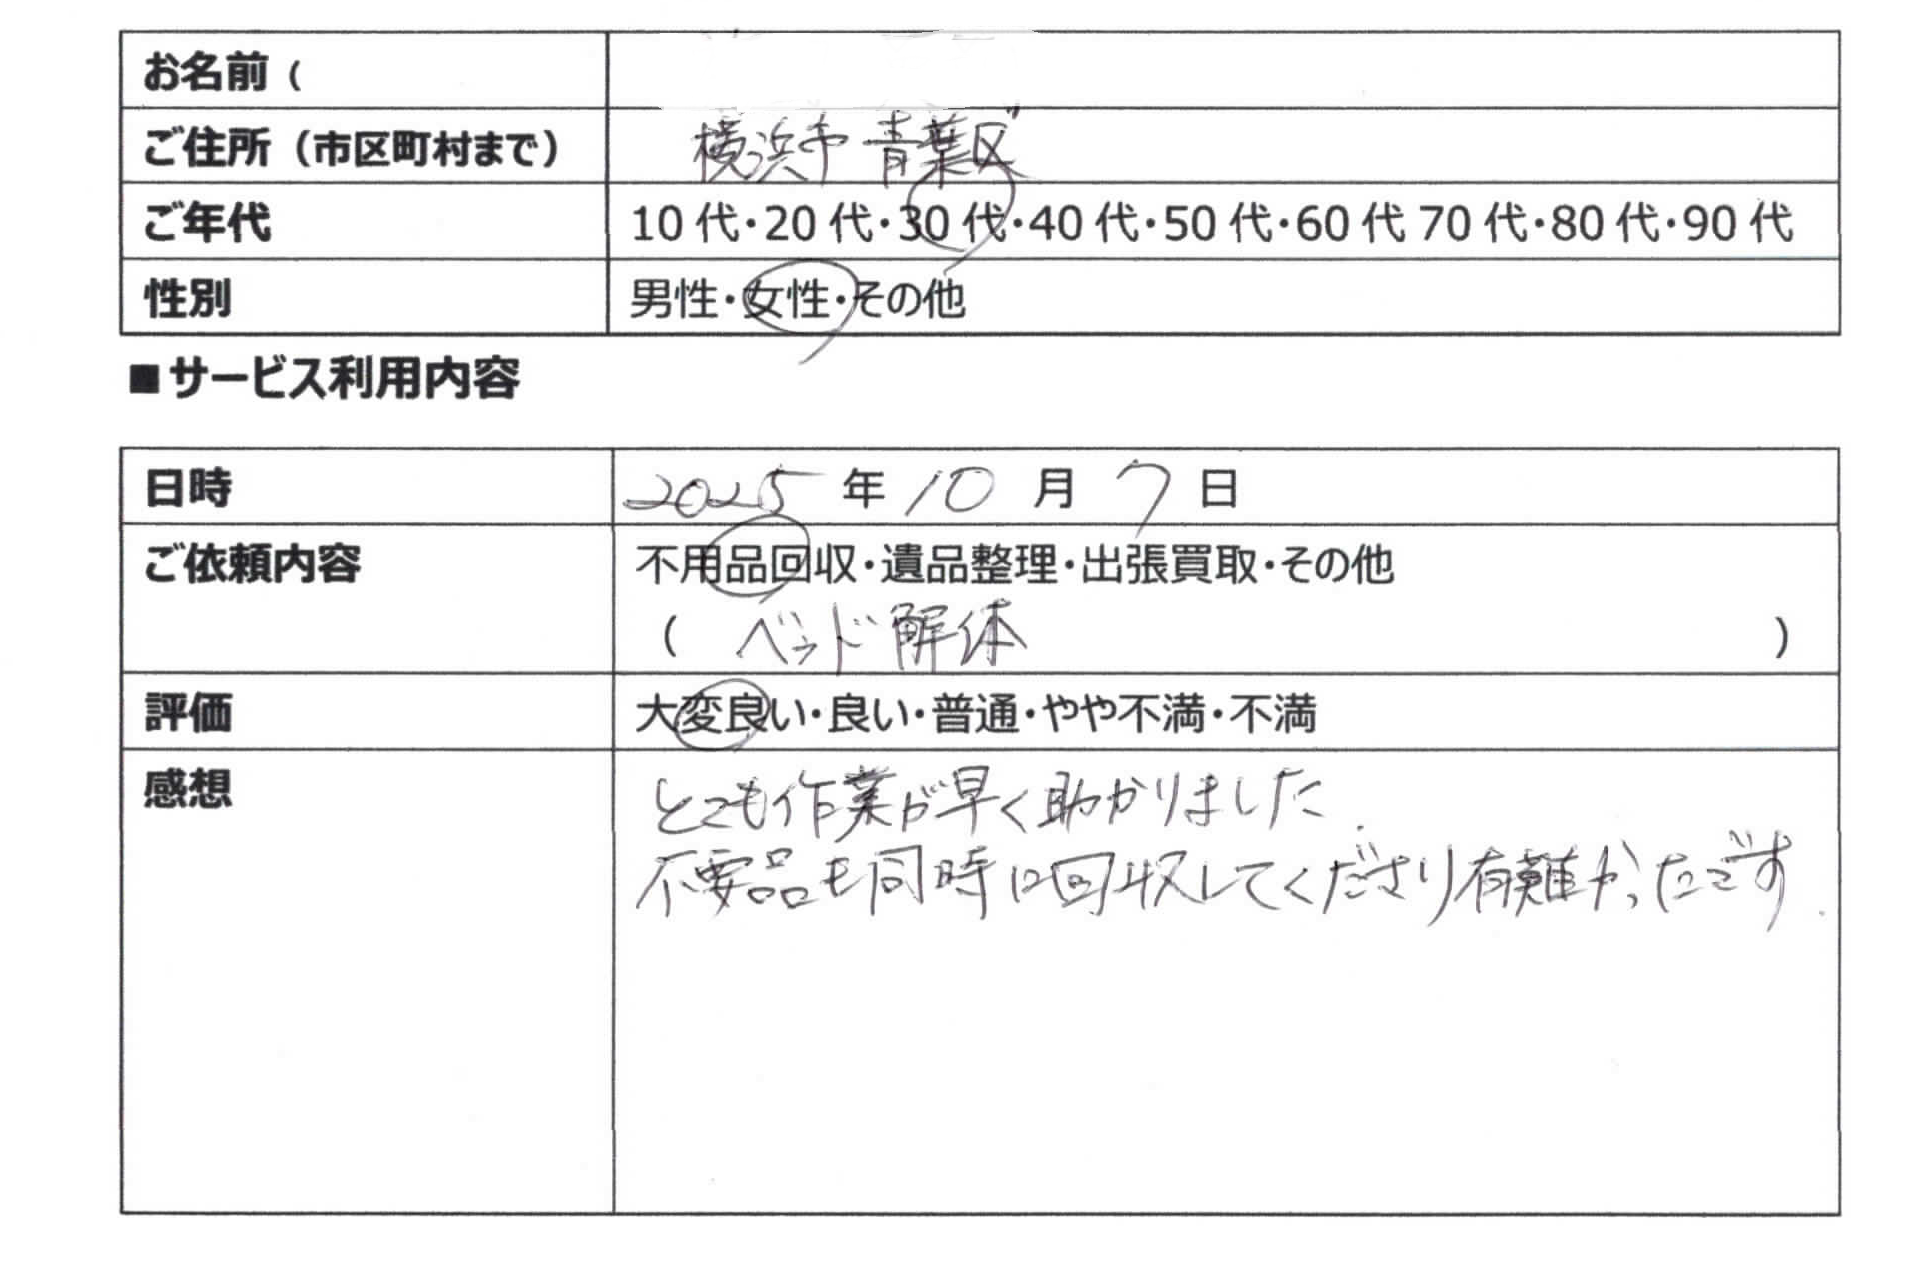 お名前（
ご住所（市区町村まで） 横浜市 青葉区
ご年代 10代・20代・30代・40代・50代・60代 70代・80代・90代
性別 男性・女性・その他
■サービス利用内容
日時 2025年10月7日
ご依頼内容 不用品回収・遺品整理・出張買取・その他
（ ベッド解体 ）
評価 大変良い・良い・普通・やや不満・不満
感想 とても作業が早く助かりました.
不要品も同時に回収してくださり有難かったです.